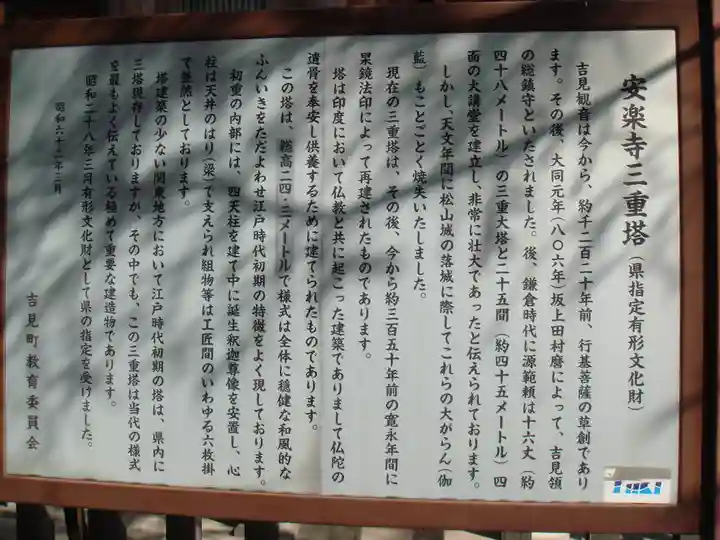 安楽寺三重塔(県指定有形文化財)
吉見観音は今から、約千二百二十年前、行基菩薩の草創であり
ます。その後、大同元年(八〇六年)坂上田村麿によって、吉見領
の総鎮守といたされました。後、鎌倉時代に源範頼は十六丈(約
四十八メートル)の三重大塔と二十五間(約四十五メートル)四
面の大講堂を建立し、非常に壮大であったと伝えられております。
しかし、天文年間に松山城の落城に際してこれらの大がらん(伽
藍)もことごとく焼失いたしました。
現在の三重塔は、その後、今から約三百五十年前の寛永年間に
杲鏡法印によって再建されたものであります。
塔は印度において仏教と共に起こった建築でありまして仏陀の
遺骨を奉安し供養するために建てられたものであります。
この塔は、総高二四・三メートルで様式は全体に穏健な和風的な
ふんいきをただよわせ江戸時代初期の特徴をよく現しております。
初重の内部には、四天柱を建て中に誕生釈迦尊像を安置し、心
柱は天井のはり(梁)で支えられ組物等は工匠間のいわゆる六枚掛
で整然としております。
塔建築の少ない関東地方において江戸時代初期の塔は、県内に
三塔現存しておりますが、その中でも、この三重塔は当代の様式
を最もよく伝えている極めて重要な建造物であります。
昭和二十八年三月有形文化財として県の指定を受けました。
昭和六十二年三月
吉見町教育委員会